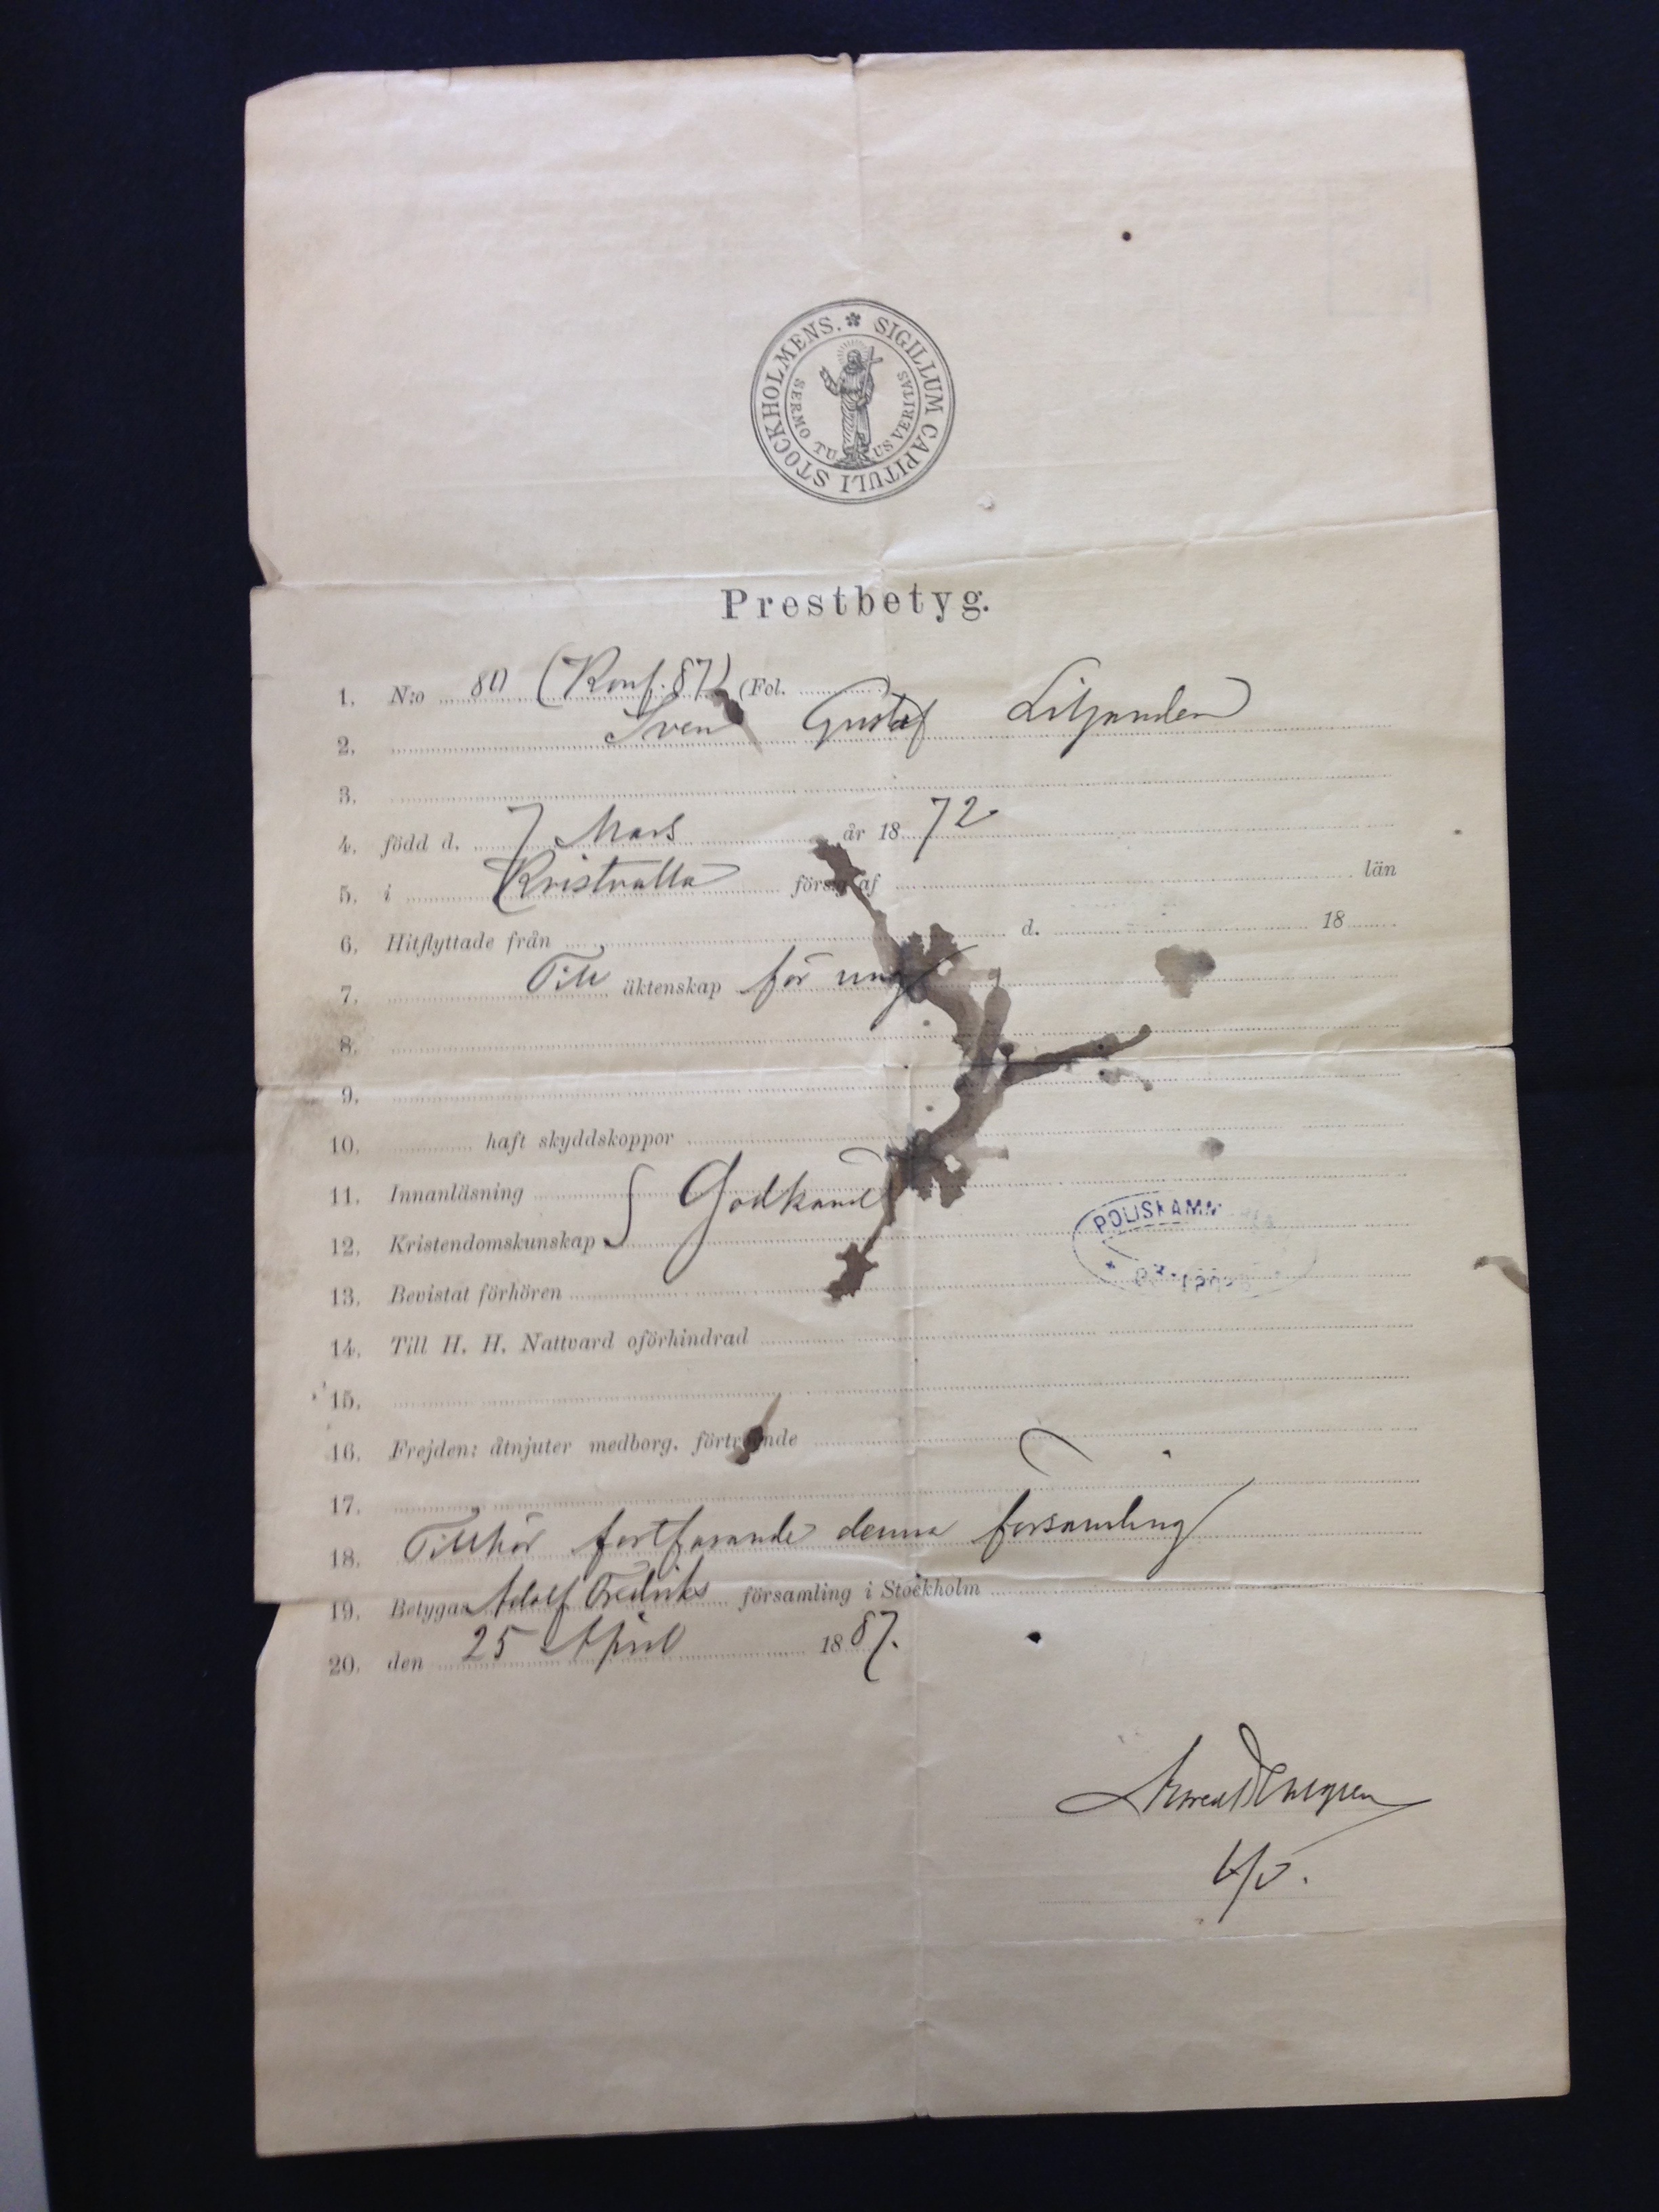 SIGILLUM CAPITULI STOCKHOLMENS.
SERMO TUUS VERITAS
Prestbetyg.
1. N:o 80 (Konf. 87) (Fol.
2. Sven Gustaf Liljander
3.
4. född d. 7 Mars år 1872
5. i Kristvalla förs. af län
6. Hitflyttade från d. 18
7. Till äktenskap för ung
8.
9.
10. haft skyddskoppor
11. Innanläsning Godkänd
12. Kristendomskunskap
POLISKAMM
13. Bevistat förhören
14. Till H. H. Nattvard oförhindrad
15.
16. Frejden: åtnjuter medborg. förtroende
17.
18. Tillhör fortfarande denna församling
19. Betygas Adolf Fredriks församling i Stockholm
20. den 25 April 1887.